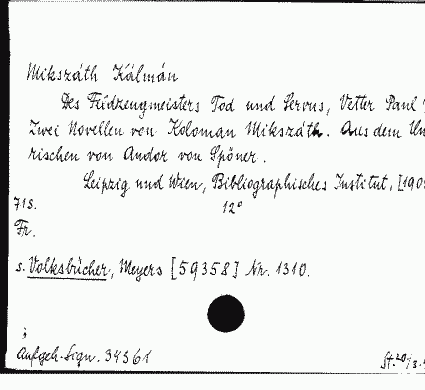 Mikszáth Kálmán
Des Feldzeugmeisters Tod und Servus, Vetter Paul!
Zwei Novellen von Koloman Mikszáth. Aus dem Un
rischen von Andor von Spóner.
Leipzig und Wien, Bibliographisches Institut, [190
71 S. 12°
Fr.
s. Volksbücher, Meyers [59358] Nr. 1310.
Aufgeh. Sign. 34361